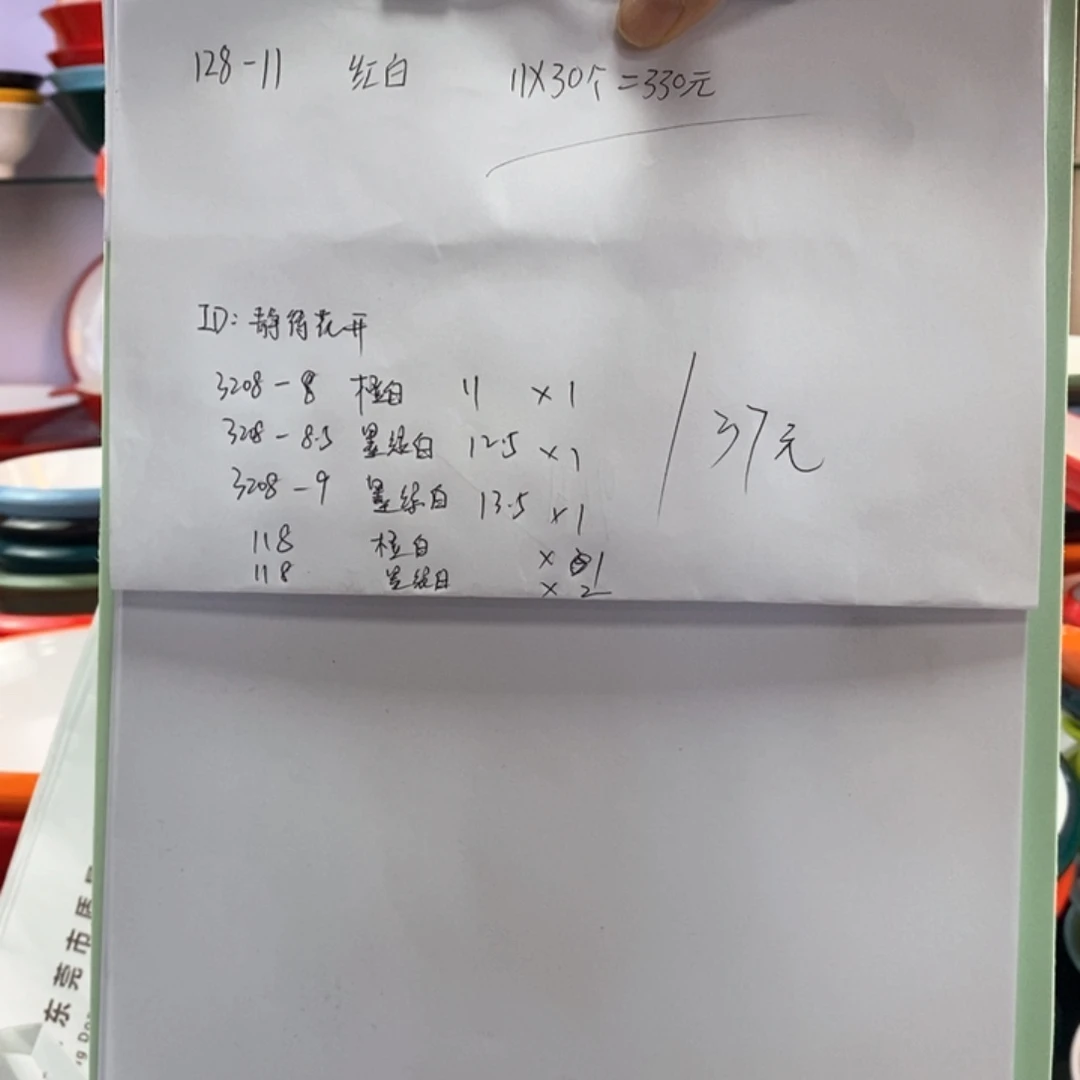 128-11 红白 11×30个=330元
ID: 静待花开
3208-8 橙白 11 ×1
3208-8.5 墨绿白 12.5 ×1
3208-9 墨绿白 13.5 ×1
37元
118 橙白 ×1
118 墨绿白 ×2
东莞市